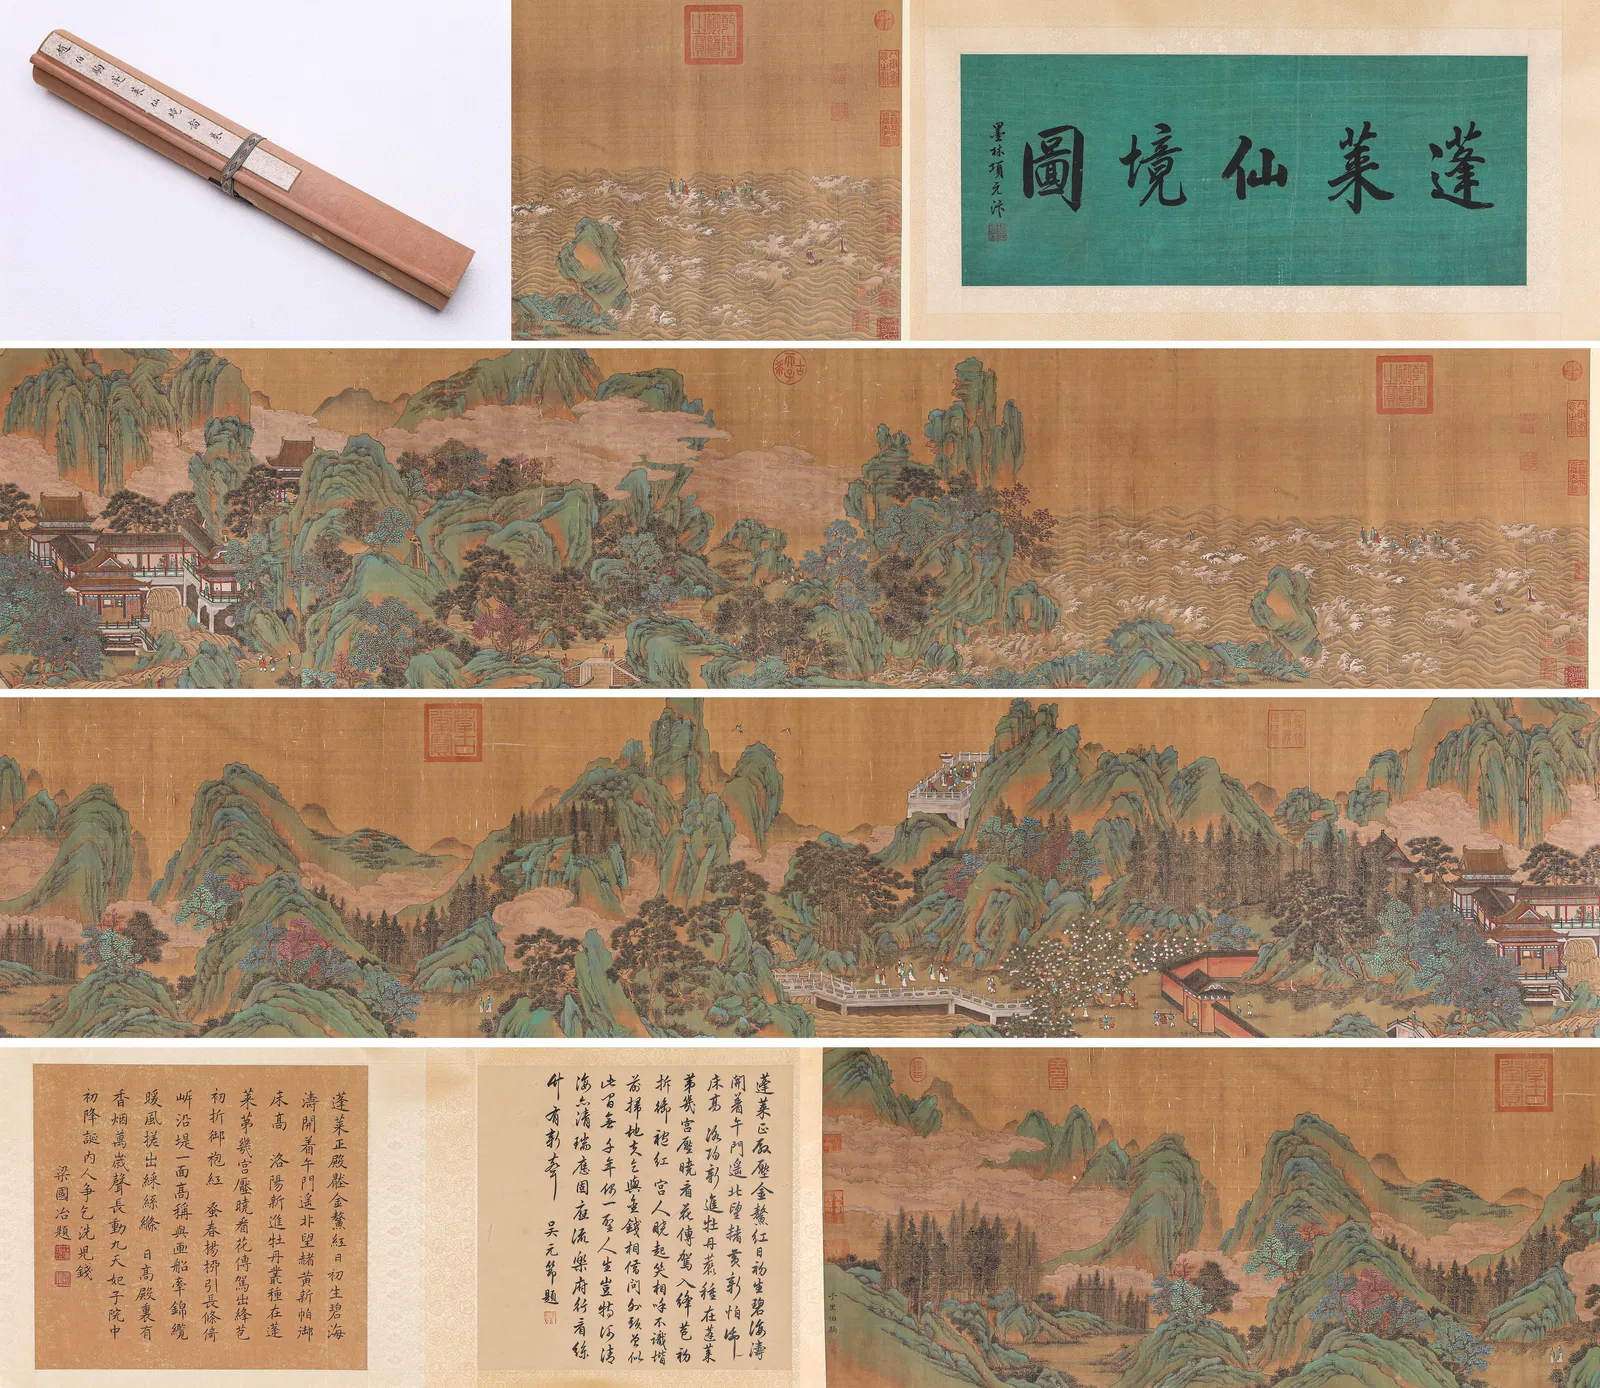 趙伯駒蓬萊仙境圖卷
蓬萊仙境圖
墨林項元汴
乾隆御覽之寶
千里伯駒
蓬萊正殿壓金鰲紅日初生碧海濤
開着午門遙北望赭黃新怕御
床高 洛陽新進牡丹叢種在蓬萊
第幾宮壓曉看花傳駕入絳苞初
拆御袍紅 宮人曉起笑相呼不識階
前掃地夫乞與金錢相借問外頭還似
此間無 千年何一聖人生豈特河清
海亦清瑞應固應流樂府行看絲
竹有新聲 吳元節題
蓬萊正殿壓金鰲紅日初生碧海
濤開着午門遙北望赭黃新帕御
床高 洛陽新進牡丹叢種在蓬
萊第幾宮壓曉看花傳駕出絳苞
初折御袍紅 春楊柳引長條倚
岸沿堤一面高稱與画船牽錦纜
暖風搓出綵絲絛 日高殿裏有
香烟萬歲聲長動九天妃子院中
初降誕內人争乞洗兒錢
梁國治題